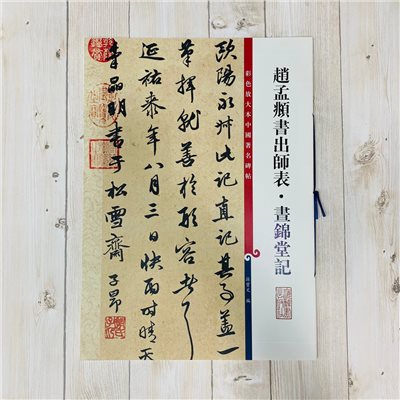 趙孟頫書出師表·晝錦堂記
彩色放大本中國著名碑帖
孫寶文 編
歐陽永叔此記直記其事蓋一
筆揮就善於形容者
延祐柒年八月三日快雨時晴天
晶明書于松雪齋 子昂